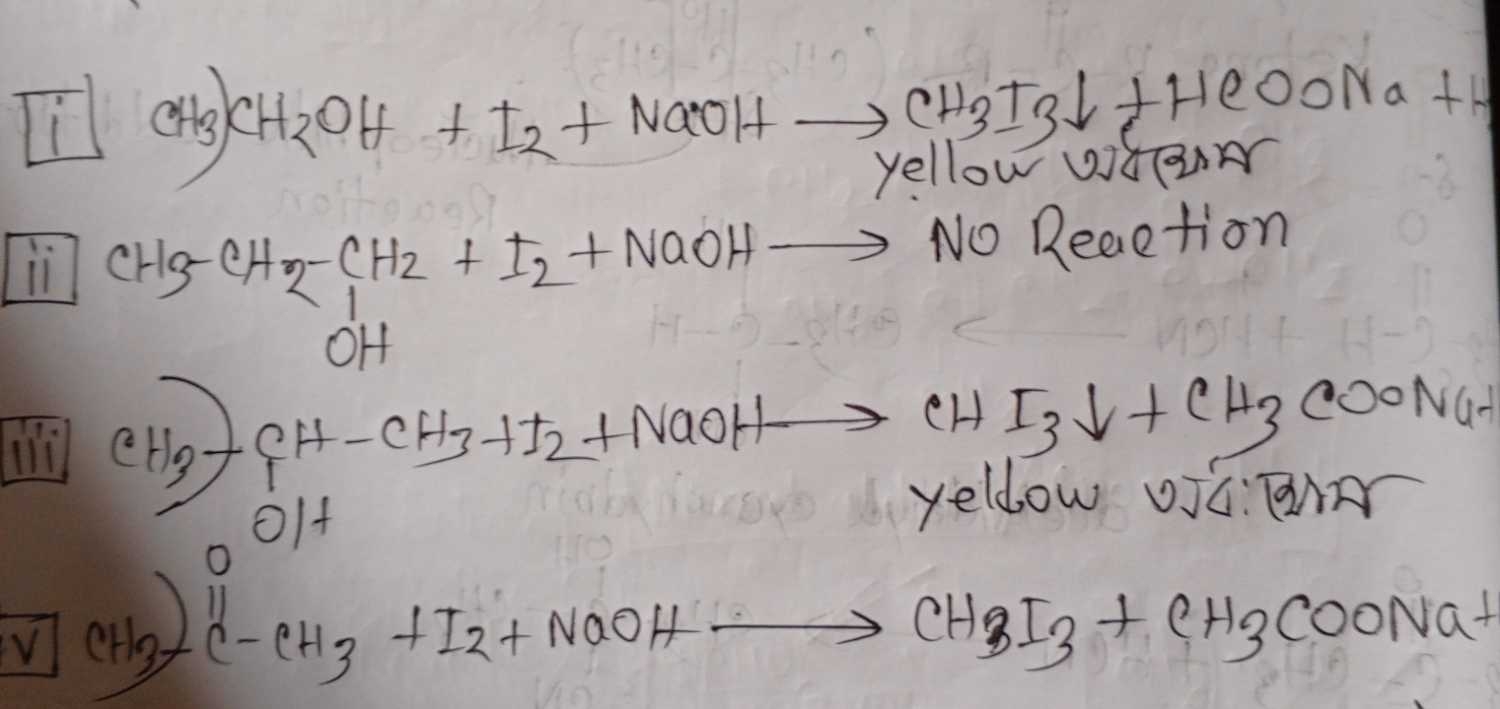 i CH3)CH2OH + I2 + NaOH → CH3I3↓ + HCOONa + H
yellow অধঃক্ষেপ
ii CH3-CH2-CH2 + I2 + NaOH → No Reaction
OH
iii CH3)-CH-CH3 + I2 + NaOH → CH I3↓ + CH3 COONa +
OH
yellow অধঃক্ষেপ
O
iv CH3)-C-CH3 + I2 + NaOH → CH3I3 + CH3COONa +